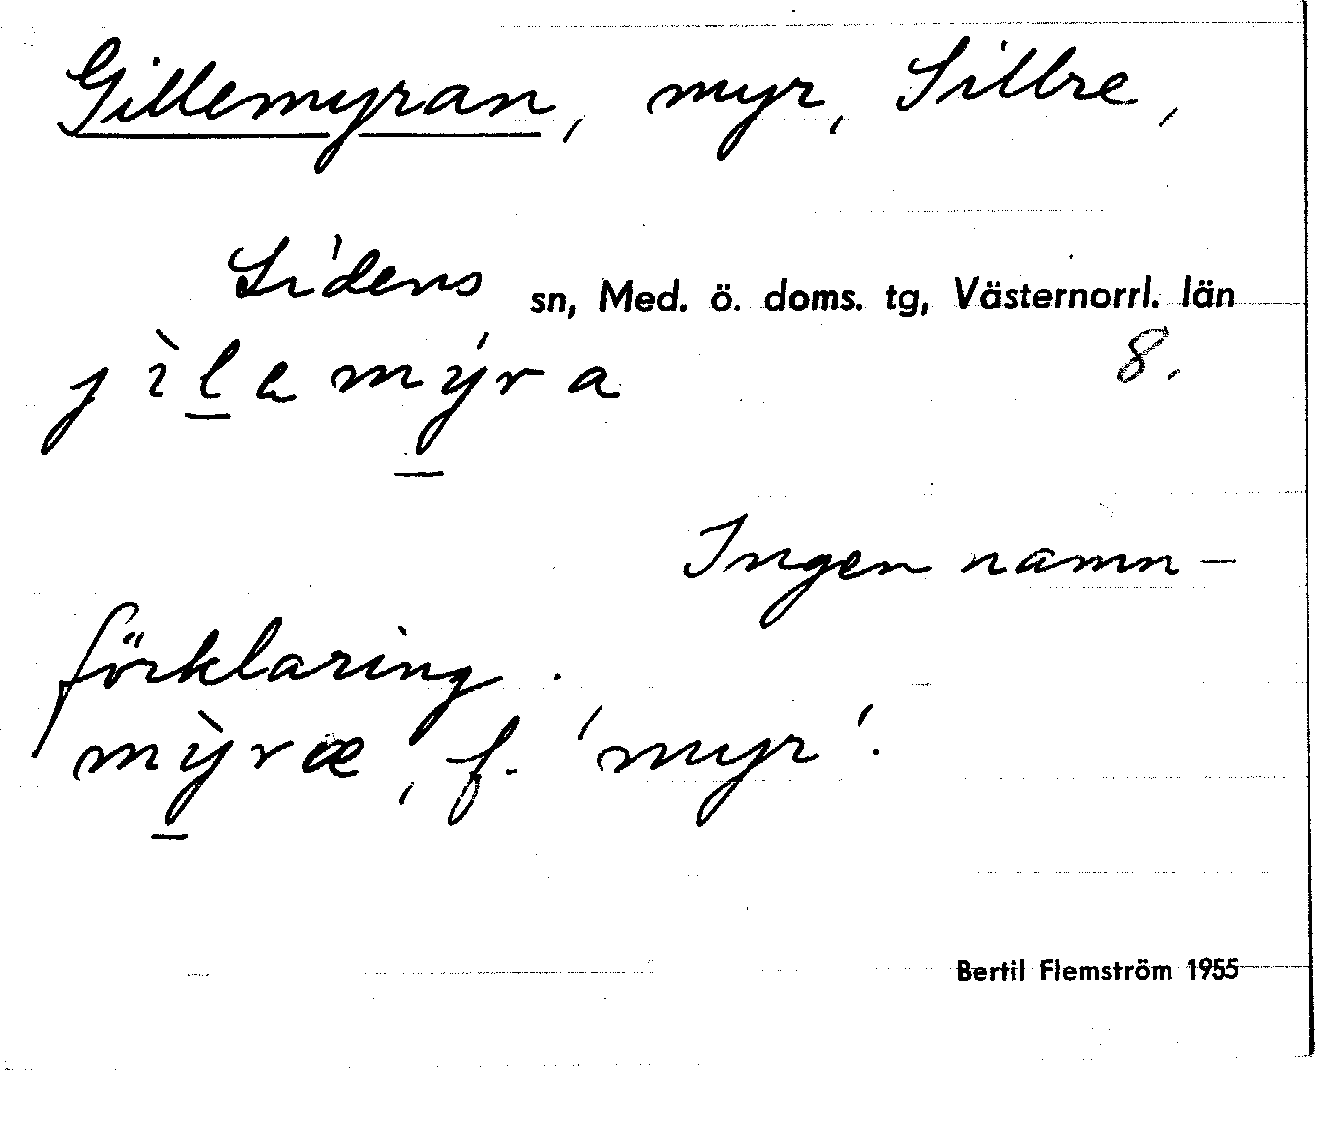 Gillemyran, myr, Sillre,
Lidens sn, Med. ö. doms. tg, Västernorrl. län
jìl̲emý̲ra 8.
Ingen namn-
förklaring.
mỳ̲ræ, f. 'myr'.
Bertil Flemström 1955